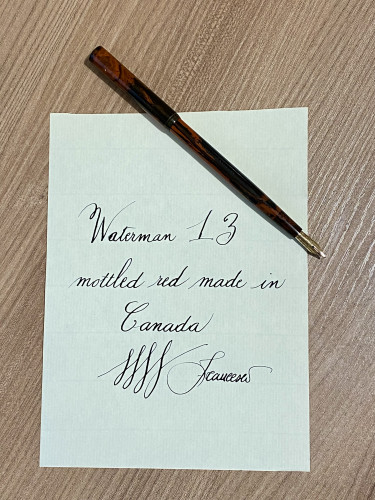 Waterman 13
mottled red made in
Canada
Francesco